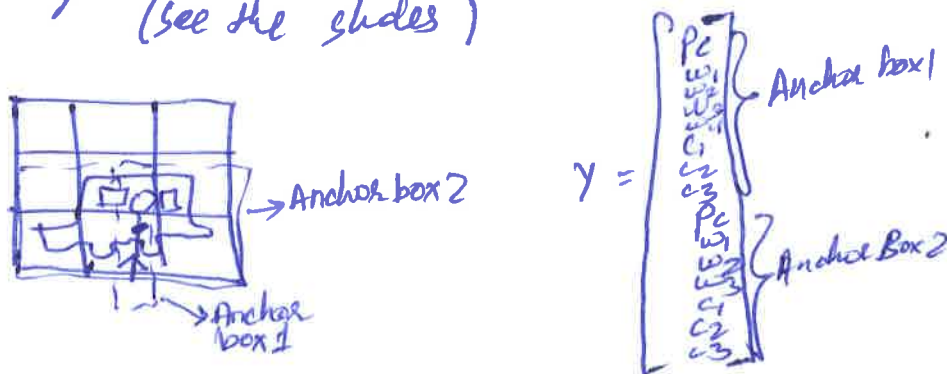 (see the slides)
Anchor box 2
Anchor
box 1
Y =
Pc
C1
C2
C3
Pc
C1
C2
C3
Anchor box 1
Anchor Box 2